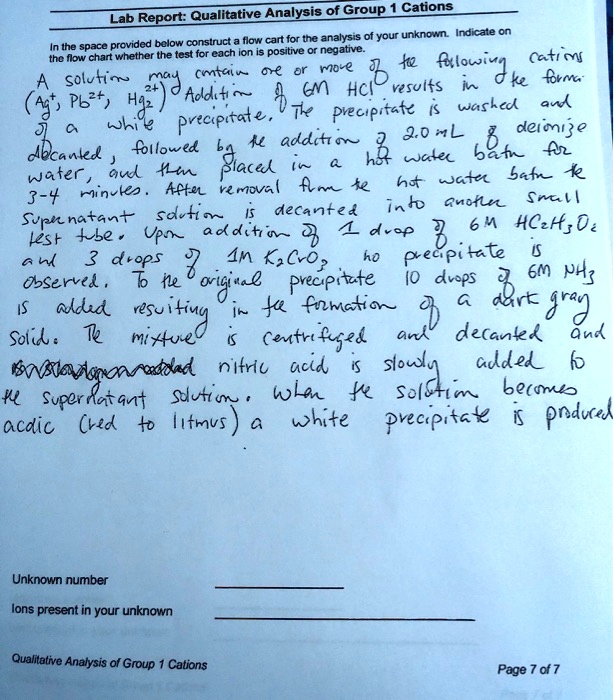 Lab Report: Qualitative Analysis of Group 1 Cations
In the space provided below construct a flow cart for the analysis of your unknown. Indicate on
the flow chart whether the test for each ion is positive or negative.
A solution may contain one or more of the following cations
(Ag⁺, Pb²⁺, Hg₂²⁺) Addition of 6M HCl results in the forma
of a white precipitate. The precipitate is washed and
decanted, followed by the addition of 2.0 mL of deionize
water, and then placed in a hot water bath for
3-4 minutes. After removal from the hot water bath the
supernatant solution is decanted into another small
test tube. Upon addition of 1 drop of 6M HC₂H₃O₂
and 3 drops of 1M K₂CrO₂ no precipitate is
observed. To the original precipitate 10 drops of 6M NH₃
is added resulting in the formation of a dark gray
solid. The mixture is centrifuged and decanted and
nitric acid is slowly added to
the supernatant solution. When the solution becomes
acdic (red to litmus) a white precipitate is produced
Unknown number
Ions present in your unknown
Qualitative Analysis of Group 1 Cations
Page 7 of 7